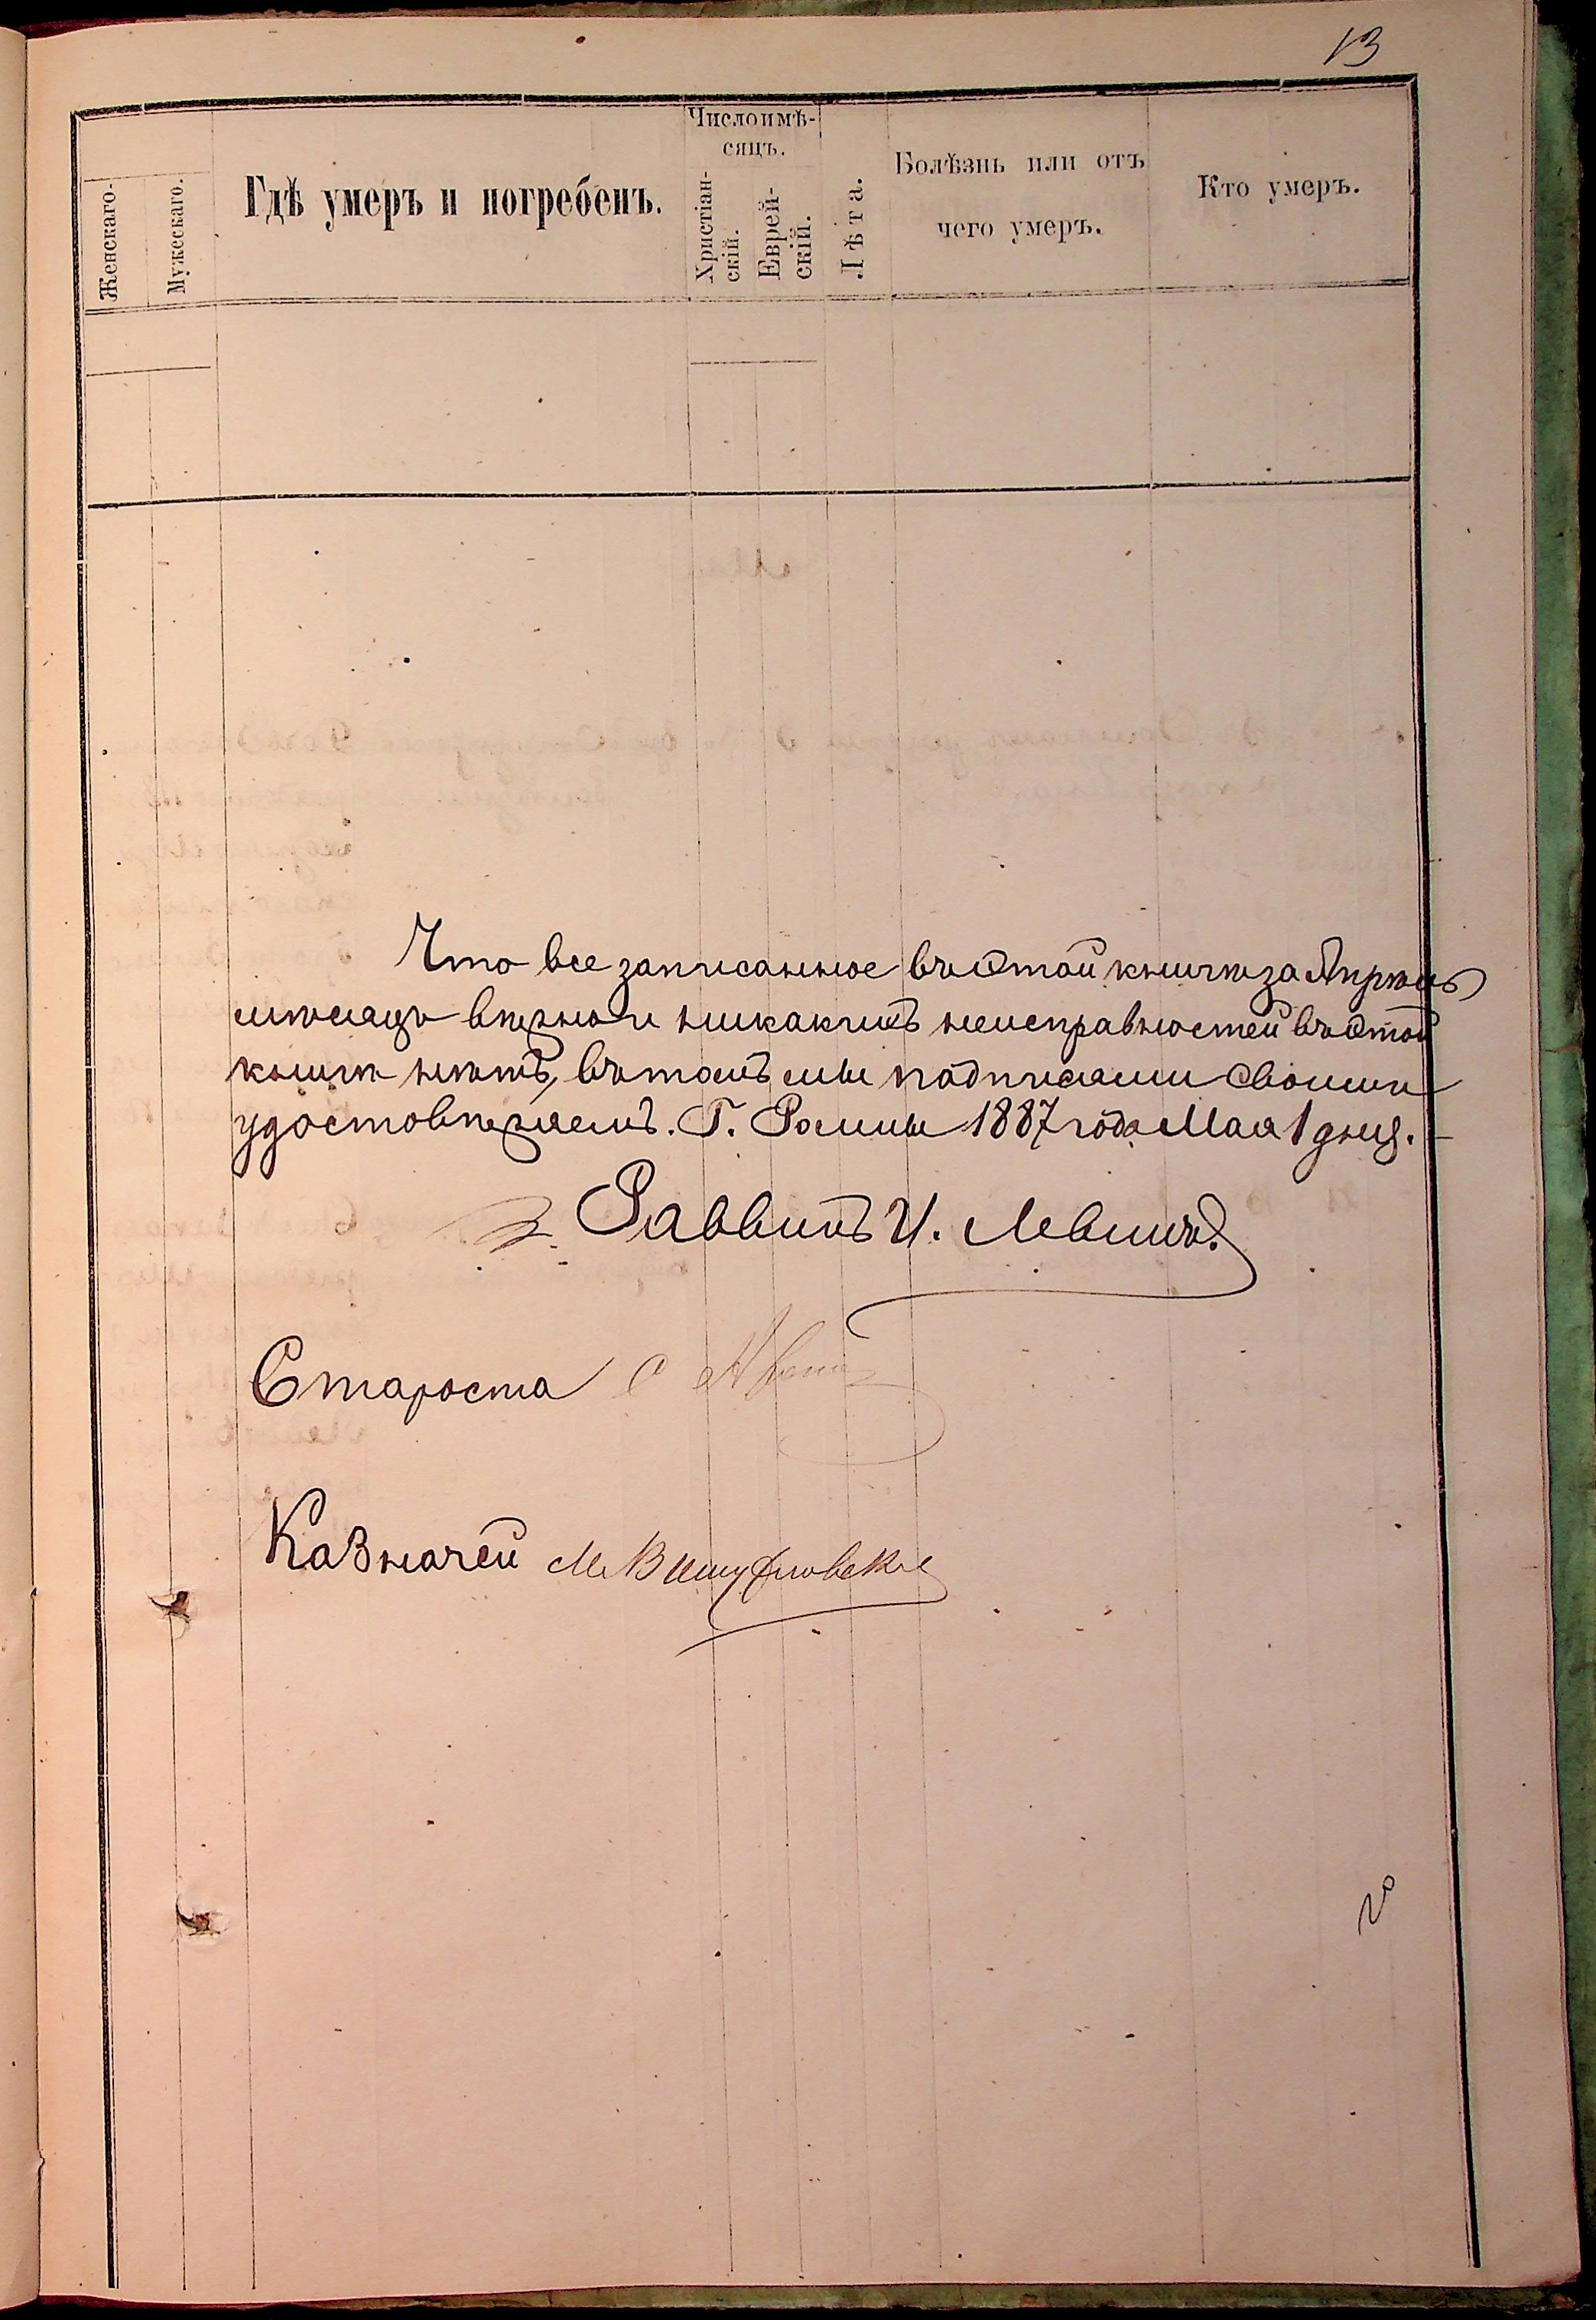 13
Женскаго.
Мужескаго.
Гдѣ умеръ и погребенъ.
Число и мѣ-
сяцъ.
Христіан-
скій.
Еврей-
скій.
Лѣта.
Болѣзнь или отъ
чего умеръ.
Кто умеръ.
Что все записанное въ этой книгѣ за Апрѣль
мѣсяцъ вѣрно и никакихъ неисправностей въ этой
книгѣ нѣтъ, въ томъ мы подписами своими
удостовѣряемъ. Г. Ромны 1887 года Мая 1 дня.
Раввинъ И. Левинъ
Староста
Казначей М